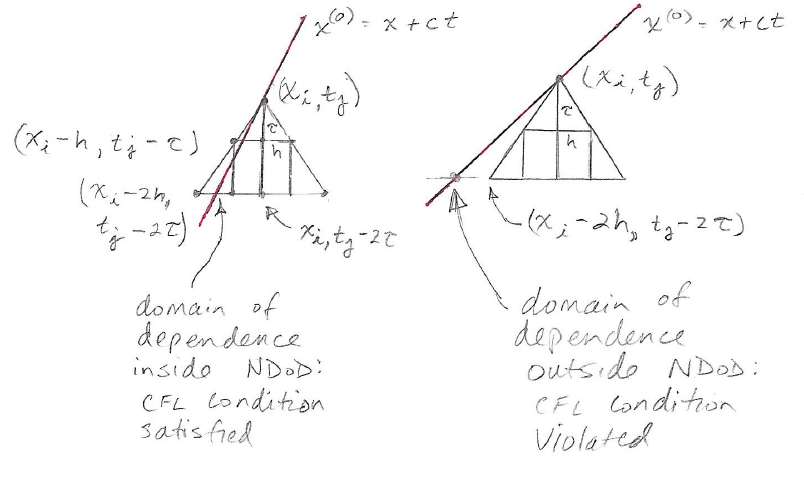 x⁽⁰⁾ = x + ct
(xᵢ, tⱼ)
τ
h
(xᵢ-h, tⱼ-τ)
(xᵢ-2h,
tⱼ-2τ)
xᵢ, tⱼ-2τ
domain of
dependence
inside NDoD:
CFL condition
satisfied
x⁽⁰⁾ = x+ct
(xᵢ, tⱼ)
τ
h
(xᵢ-2h, tⱼ-2τ)
domain of
dependence
outside NDoD:
CFL condition
Violated